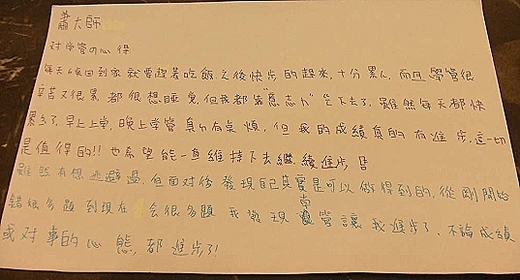 蕭大師
对學管の心得
每天6夜回到家就要趕著吃飯之後快步的趕來,十分累人,而且學管很
辛苦又很累都很想睡覺,但我都靠"意志力"ㄍㄥ下去了,雖然每天都快
累了,早上上學,晚上學管真的有夠煩,但我的成績真的有進步,這一切
是值得的!! 也希望能一直維持下去繼續進步!!
雖然有想逃避過,但面对後發現自己真實是可以做得到的,從剛開始
錯很多題到現在會很多題 我發現學管讓我進步了,不論成績
或对事的心態,都進步了!